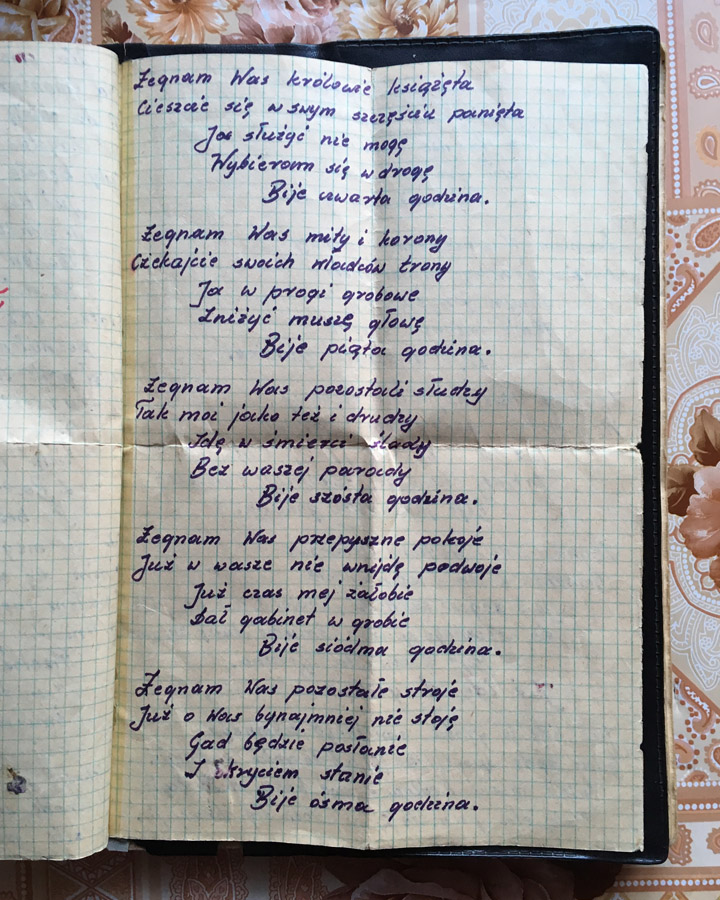 Żegnam Was królowie książęta
Cieszcie się w swym szczęściu panięta
Ja służyć nie mogę
Wybieram się w drogę
Bije czwarta godzina.
Żegnam Was mity i korony
Czekajcie swoich władców trony
Ja w progi grobowe
Zniżyć muszę głowę
Bije piąta godzina.
Żegnam Was pozostali słudzy
Tak moi jako też i drudzy
Idę w śmierci ślady
Bez waszej parady
Bije szósta godzina.
Żegnam Was przepyszne pokoje
Już w wasze nie wnijdę podwoje
Już czas mej żałobie
Dał gabinet w grobie
Bije siódma godzina.
Żegnam Was pozostałe stroje
Już o Was bynajmniej nie stoję
Gad będzie posłanie
I okryciem stanie
Bije ósma godzina.